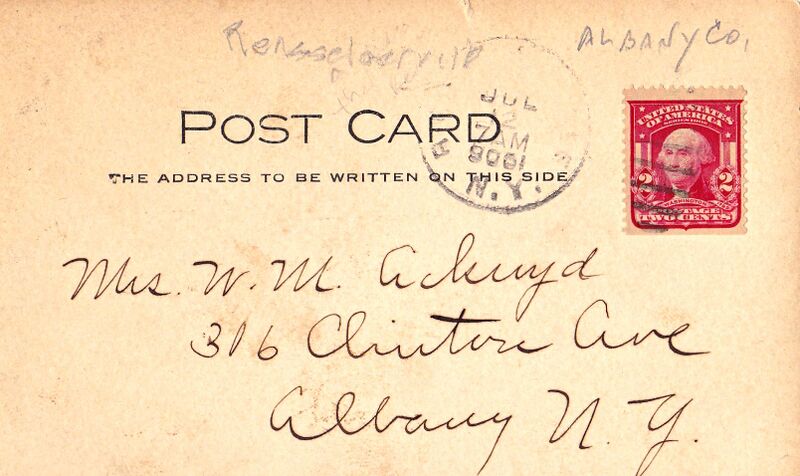 Rensselaerville
ALBANY CO.
POST CARD
THE ADDRESS TO BE WRITTEN ON THIS SIDE
JUL
12
7 AM
1906
N.Y.
UNITED STATES
OF AMERICA
SERIES 1902
2 2
WASHINGTON
POSTAGE
TWO CENTS
Mrs. W. M. Ackroyd
316 Clinton Ave
Albany N. Y.